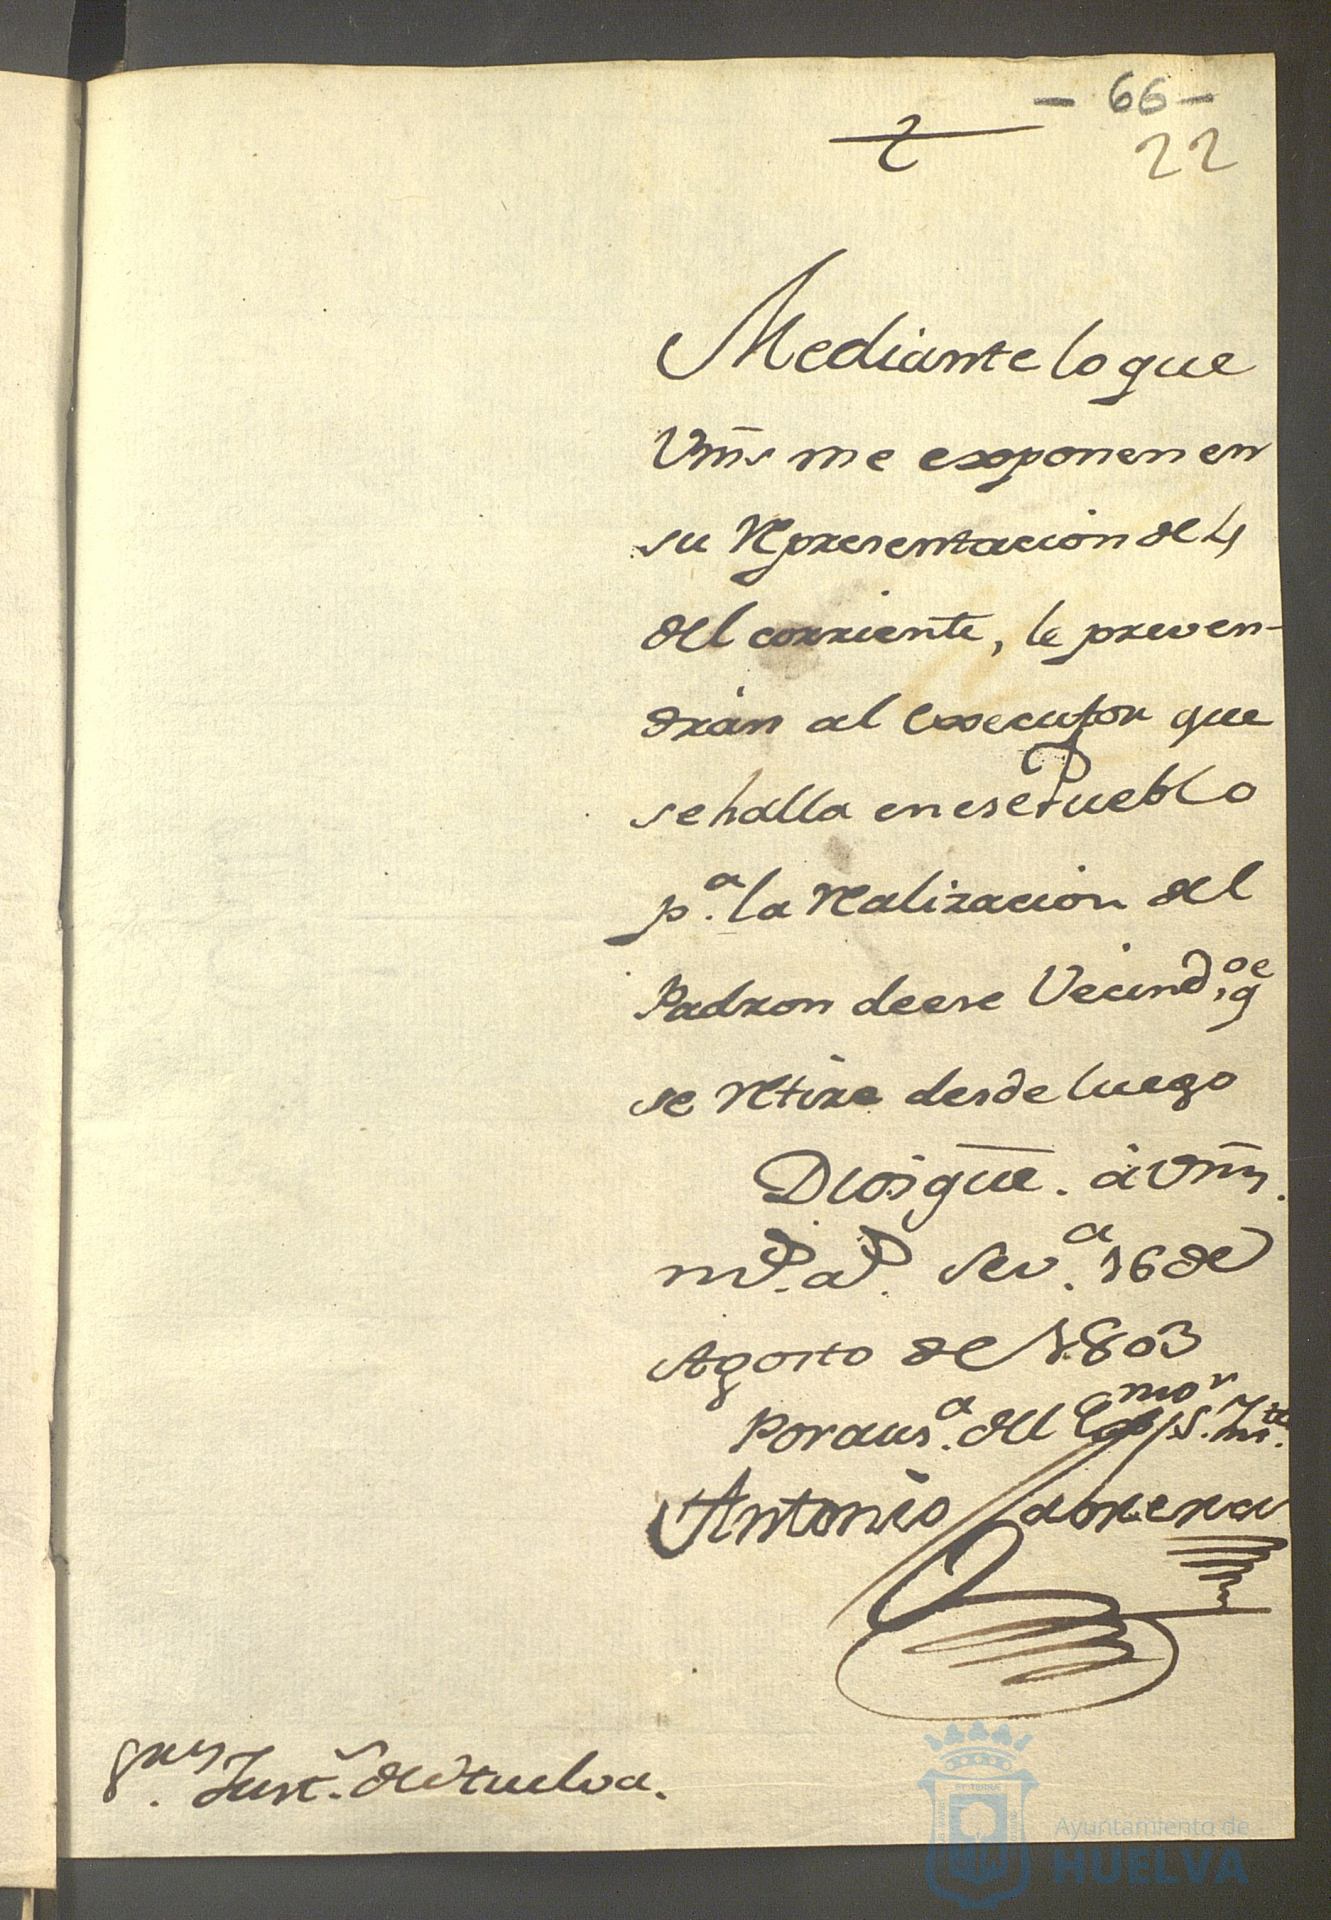 - 66 -
22
Mediante lo que
Vms me exponen en
su representacion de 4
del corriente, le preven-
drán al executor que
se halla en ese Pueblo
pa. la realizacion del
Padron de ese Vecindo, qe
se retire desde luego
Dios gue. á Vms.
ms. as. Seva. 16 de
Agosto de 1803
Por ausa. del Exmo Sor Inte.
Antonio Cabrera
Sres. Justs. de Huelva.
Ayuntamiento de
HUELVA